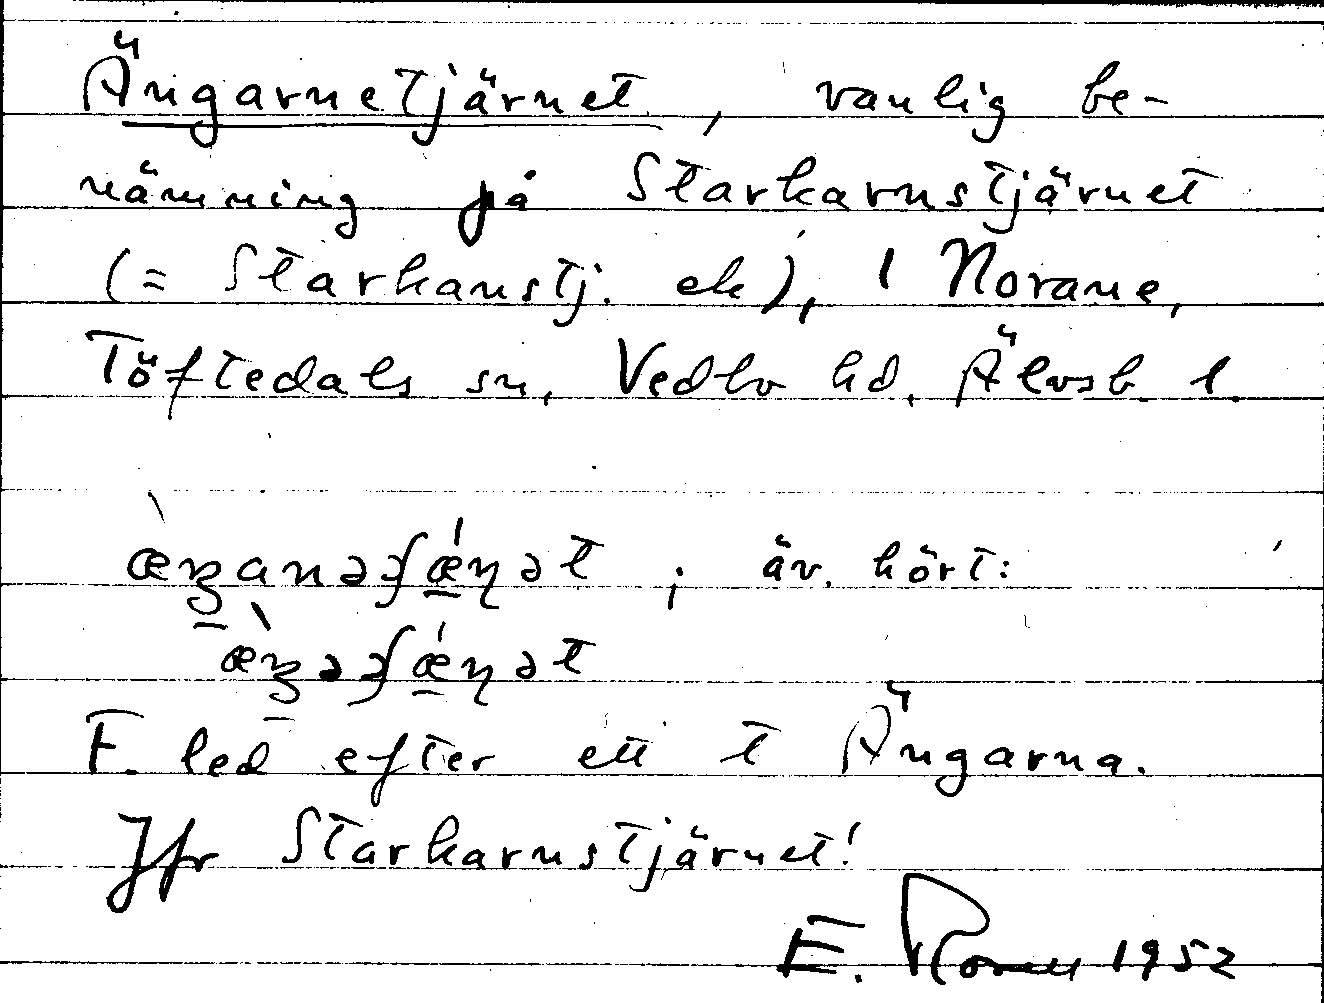 Ängarnetjärnet, vanlig be-
nämning på Starkarnstjärnet
(= Starkanstj. ek), i Norane,
Töftedals sn, Vedbo hd, Älvsb. l.
æŋanəʃæ̀ɳət ; äv. hört:
æŋəʃæ̀ɳət
F. led efter ett t Ängarna.
Jfr Starkarnstjärnet!
E. 1952